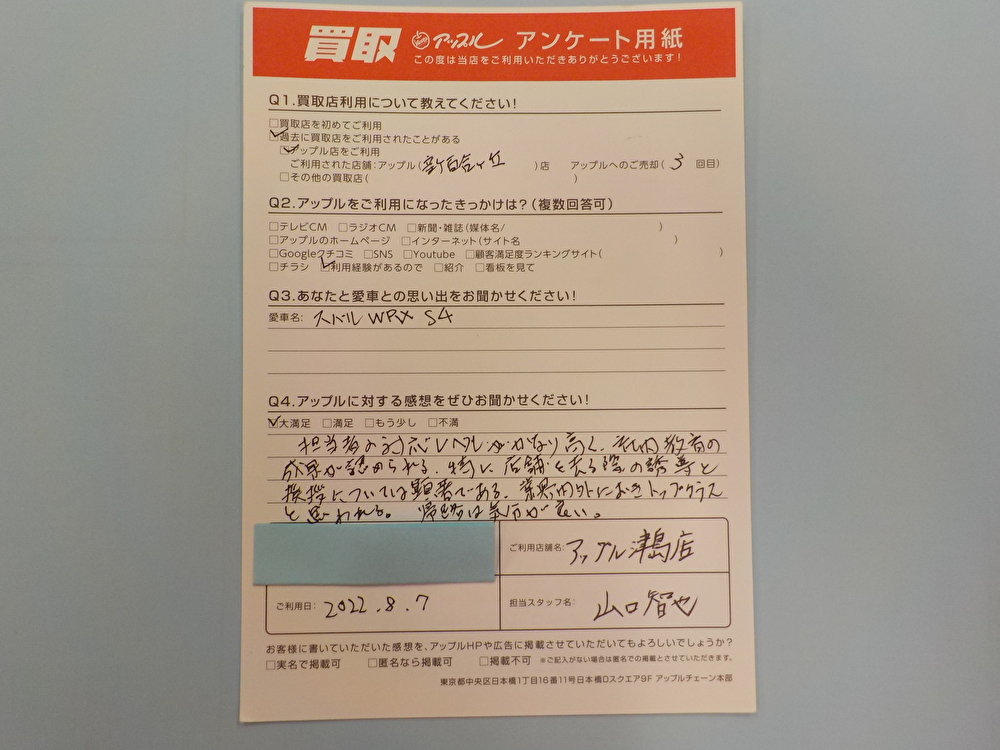 買取 アップル アンケート用紙
この度は当店をご利用いただきありがとうございます!
Q1.買取店利用について教えてください!
□買取店を初めてご利用
☑過去に買取店をご利用されたことがある
☑アップル店をご利用
ご利用された店舗:アップル(新百合ヶ丘)店 アップルへのご売却(3回目)
□その他の買取店( )
Q2.アップルをご利用になったきっかけは?(複数回答可)
□テレビCM □ラジオCM □新聞・雑誌(媒体名/ )
□アップルのホームページ □インターネット(サイト名 )
□Googleクチコミ □SNS □Youtube □顧客満足度ランキングサイト( )
□チラシ ☑利用経験があるので □紹介 □看板を見て
Q3.あなたと愛車との思い出をお聞かせください!
愛車名: スバル WRX S4
Q4.アップルに対する感想をぜひお聞かせください!
☑大満足 □満足 □もう少し □不満
担当者の対応レベルがかなり高く、社内教育の
成果が認められる。特に店舗を去る際の誘導と
挨拶については顕著である。業界内外におきトップクラス
と思われる。帰路は気分が良い。
ご利用店舗名: アップル津島店
ご利用日: 2022.8.7
担当スタッフ名: 山口智也
お客様に書いていただいた感想を、アップルHPや広告に掲載させていただいてもよろしいでしょうか?
□実名で掲載可 □匿名なら掲載可 □掲載不可 ※ご記入がない場合は匿名での掲載とさせていただきます。
東京都中央区日本橋1丁目16番11号日本橋Dスクエア9F アップルチェーン本部